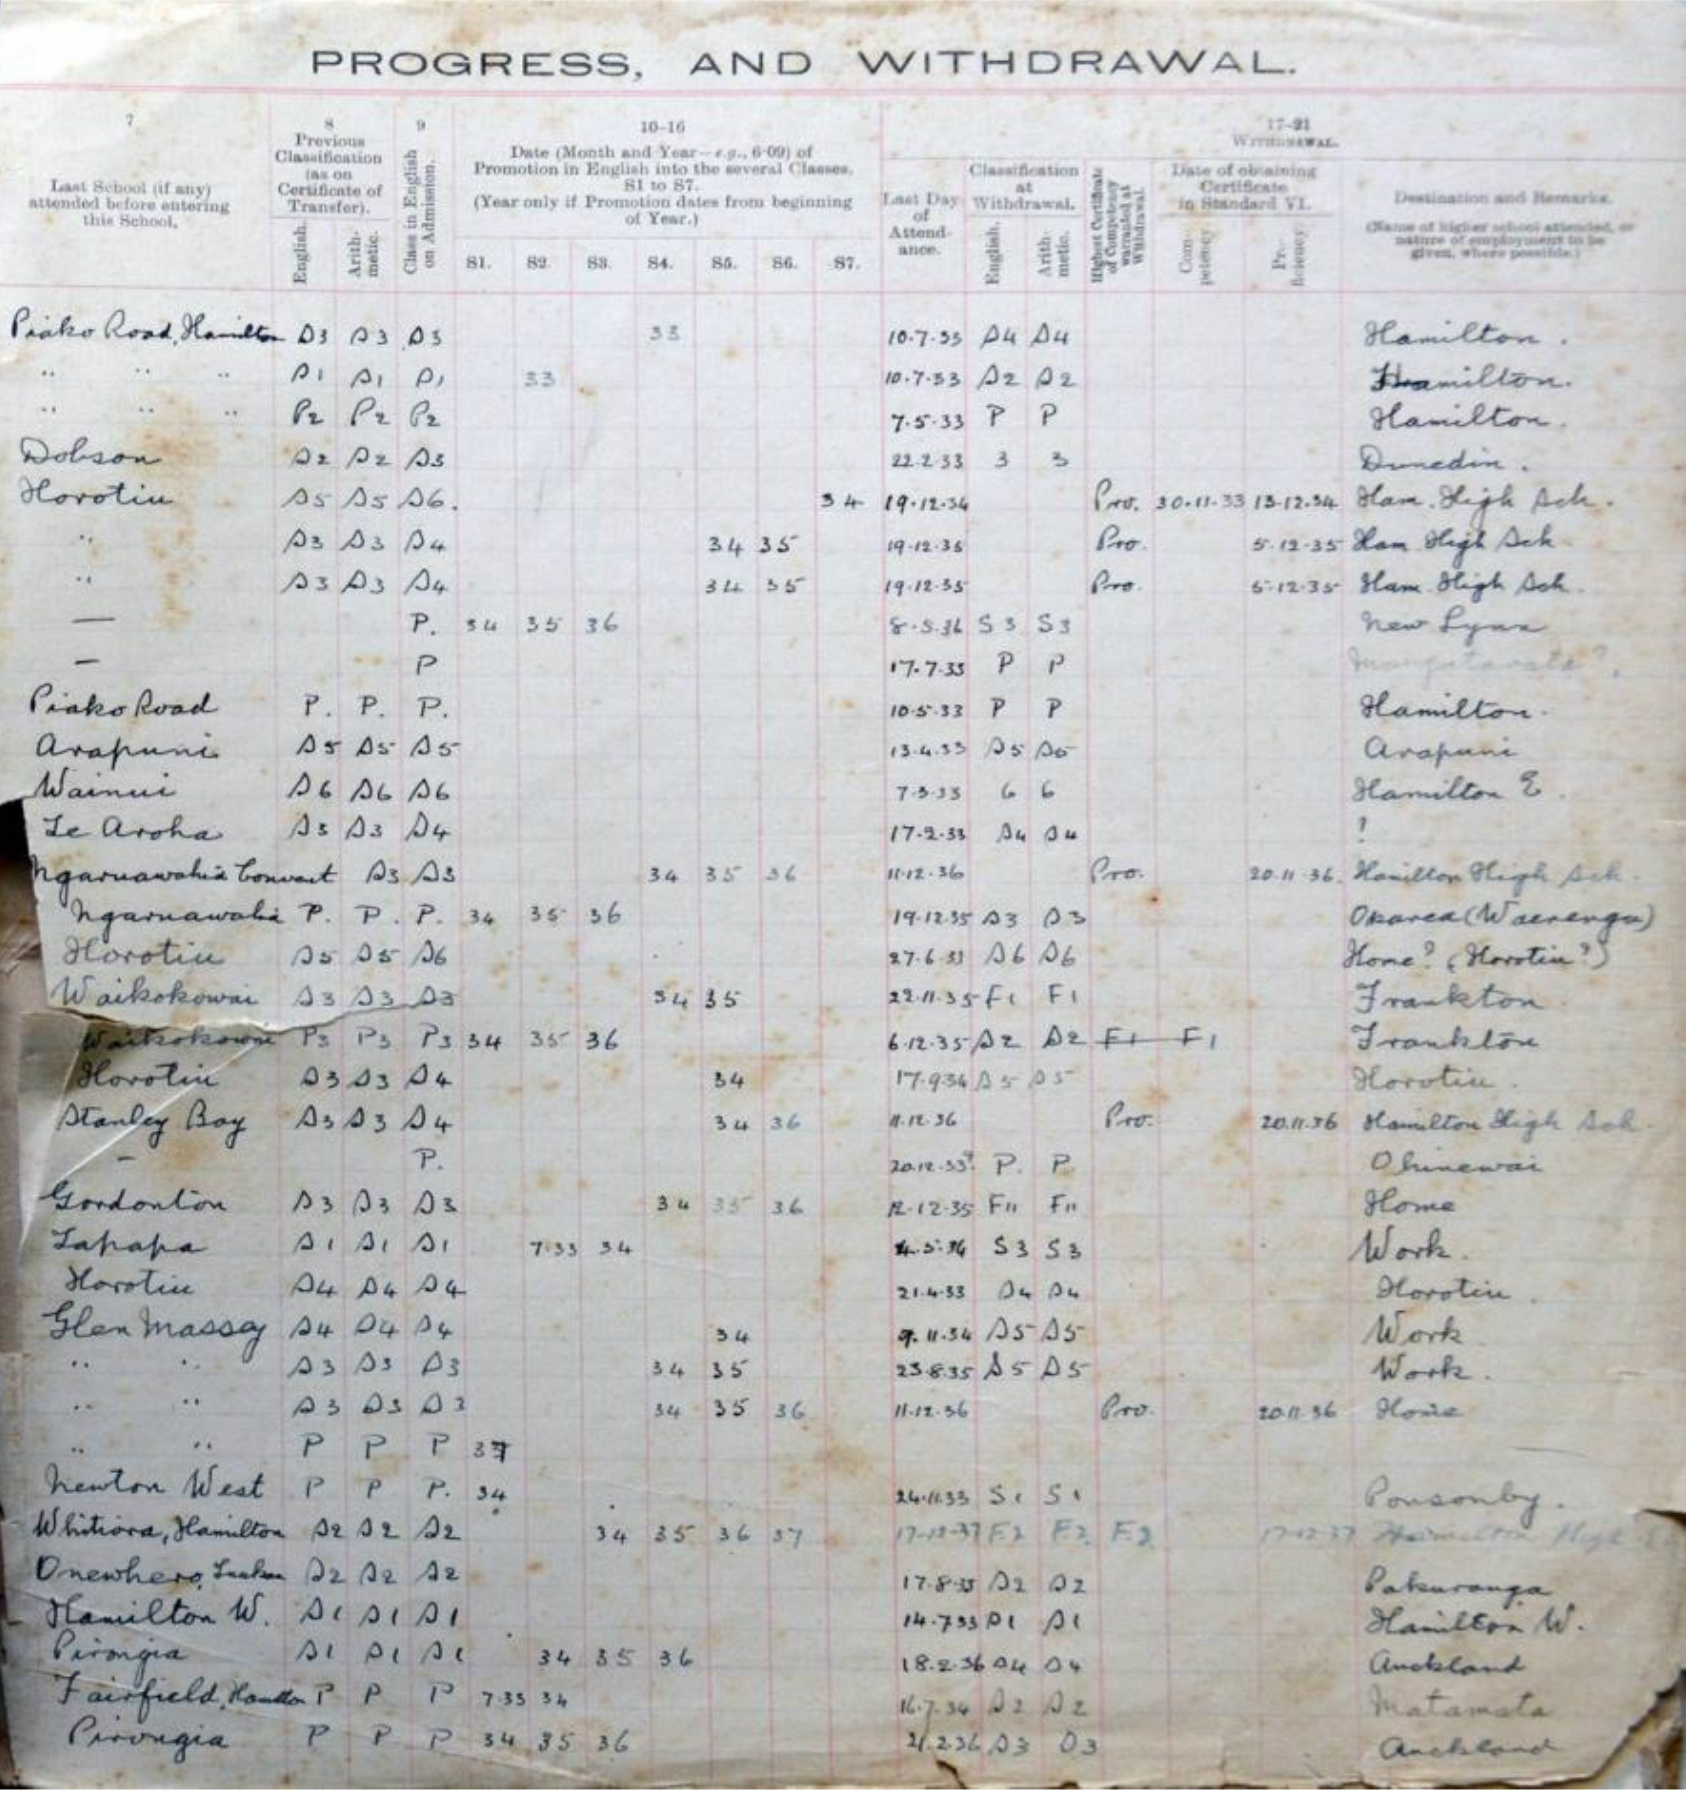 PROGRESS, AND WITHDRAWAL.
7 8 9 10-16 17-21
Last School (if any) attended before entering this School.
Previous Classification (as on Certificate of Transfer).
English. Arithmetic.
Class in English on Admission.
Date (Month and Year—e.g., 6·09) of Promotion in English into the several Classes, S1 to S7.
(Year only if Promotion dates from beginning of Year.)
S1. S2. S3. S4. S5. S6. S7.
WITHDRAWAL.
Last Day of Attendance.
Classification at Withdrawal.
English. Arithmetic.
Highest Certificate of Competency warranted at Withdrawal.
Date of obtaining Certificate in Standard VI.
Competency Proficiency
Destination and Remarks.
(Name of higher school attended, or nature of employment to be given, where possible.)
Piako Road, Hamilton S3 S3 S3 33 10.7.33 S4 S4 Hamilton.
" " " S1 S1 S1 33 10.7.33 S2 S2 Hamilton.
" " " P2 P2 P2 7.5.33 P P Hamilton.
Dobson S2 S2 S3 22.2.33 3 3 Dunedin.
Horotiu S5 S5 S6. 34 19.12.34 Pro. 30.11.33 13.12.34 Ham. High Sch.
" S3 S3 S4 34 35 19.12.35 Pro. 5.12.35 Ham High Sch
" S3 S3 S4 34 35 19.12.35 Pro. 5.12.35 Ham. High Sch.
— P. 34 35 36 8.5.36 S3 S3 New Lynn
— P 17.7.33 P P
Piako Road P. P. P. 10.5.33 P P Hamilton.
Arapuni S5 S5 S5 13.4.33 S5 S5 Arapuni
Wainui S6 S6 S6 7.3.33 6 6 Hamilton E.
Te Aroha S3 S3 S4 17.2.33 S4 S4 ?
Ngaruawahia Convent S3 S3 34 35 36 11.12.36 Pro. 20.11.36. Hamilton High Sch.
Ngaruawahia P. P. P. 34 35 36 19.12.35 S3 S3 Okarea (Waerenga)
Horotiu S5 S5 S6 27.6.33 S6 S6 Home? (Horotiu?)
Waikokowai S3 S3 S3 34 35 22.11.35 F1 F1 Frankton
Waikokowai P3 P3 P3 34 35 36 6.12.35 S2 S2 F1 F1 Frankton
Horotiu S3 S3 S4 34 17.9.34 S5 S5 Horotiu.
Stanley Bay S3 S3 S4 34 36 11.12.36 Pro. 20.11.36 Hamilton High Sch.
— P. 20.12.33? P. P Ohinewai
Gordonton S3 S3 S3 34 35 36 12.12.35 F11 F11 Home
Tapapa S1 S1 S1 7.33 34 4.5.34 S3 S3 Work.
Horotiu S4 S4 S4 21.4.33 S4 S4 Horotiu.
Glen Massey S4 S4 S4 34 9.11.34 S5 S5 Work
" " S3 S3 S3 34 35 23.8.35 S5 S5 Work.
" " S3 S3 S3 34 35 36 11.12.36 Pro. 20.11.36 Home
" " P P P 37
Newton West P P P. 34 24.11.33 S1 S1 Ponsonby.
Whitiora, Hamilton S2 S2 S2 34 35 36 37 17-12-37 F2 F2 F2 17-12-37 Hamilton High
Onewhero, S2 S2 S2 17.8.33 S2 S2 Pakuranga
Hamilton W. S1 S1 S1 14.7.33 S1 S1 Hamilton W.
Pirongia S1 S1 S1 34 35 36 18.2.36 S4 S4 Auckland
Fairfield, Hamilton P P P 7.33 34 16.7.34 S2 S2 Matamata
Pirongia P P P 34 35 36 21.2.36 S3 S3 Auckland